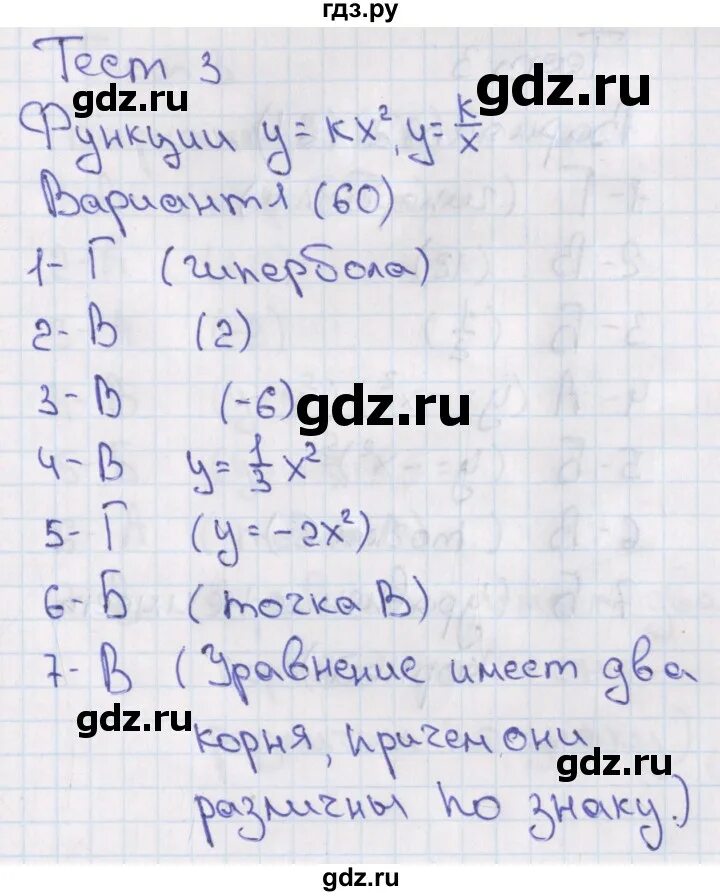 гдз.ру
Тест 3
gdz.ru
gdz.ru
Функции y = кx², y = к/x
Вариант 1 (60)
1- Г (гипербола)
2- В (2)
3- В (-6)
gdz.ru
4- В y = 1/3 x²
5- Г (y = -2x²)
6- Б (точка В)
7- В (Уравнение имеет два
gdz.ru
корня, причем они
gdz.ru
различны по знаку.)
gdz.ru